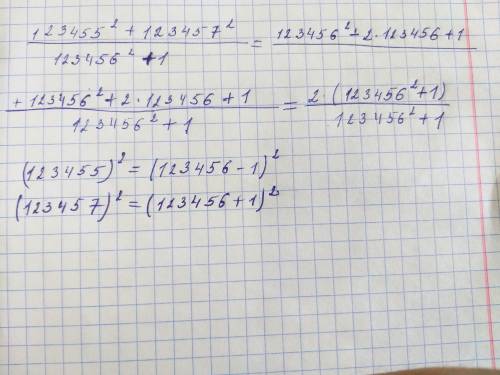 (123455² + 123457²)/(123456² + 1) = 123456² - 2·123456 + 1
(+ 123456² + 2·123456 + 1)/(123456² + 1) = (2·(123456² + 1))/(123456² + 1)
(123455)² = (123456 - 1)²
(123457)² = (123456 + 1)²